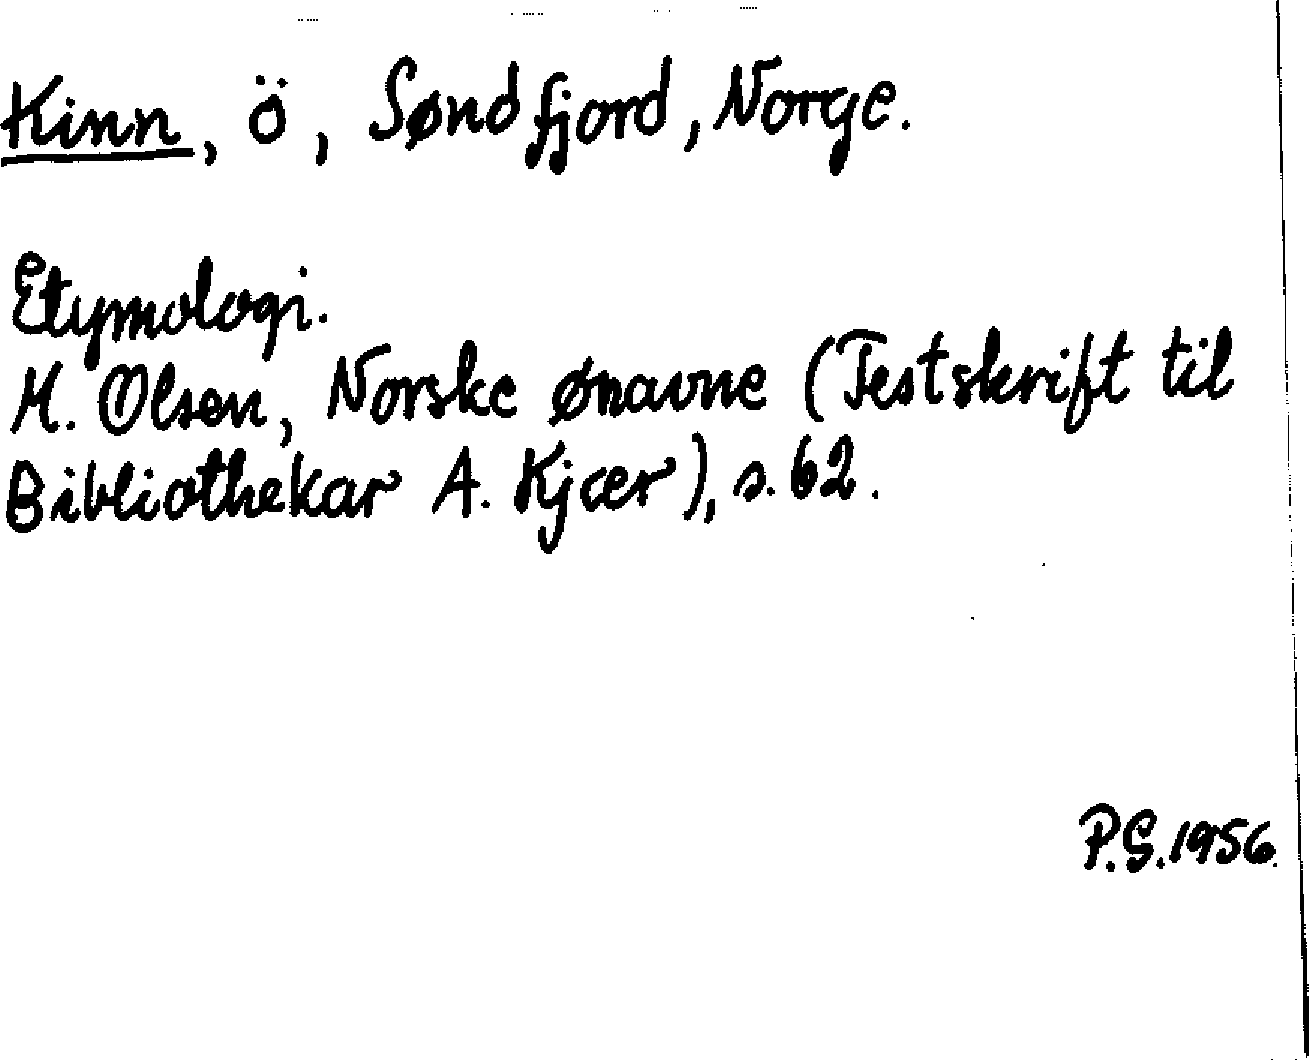 Kinn, ö, Søndfjord, Norge.
Etymologi.
M. Olsen, Norske ønavne (Festskrift til
Bibliothekar A. Kjær), s. 62.
P.G. 1956.